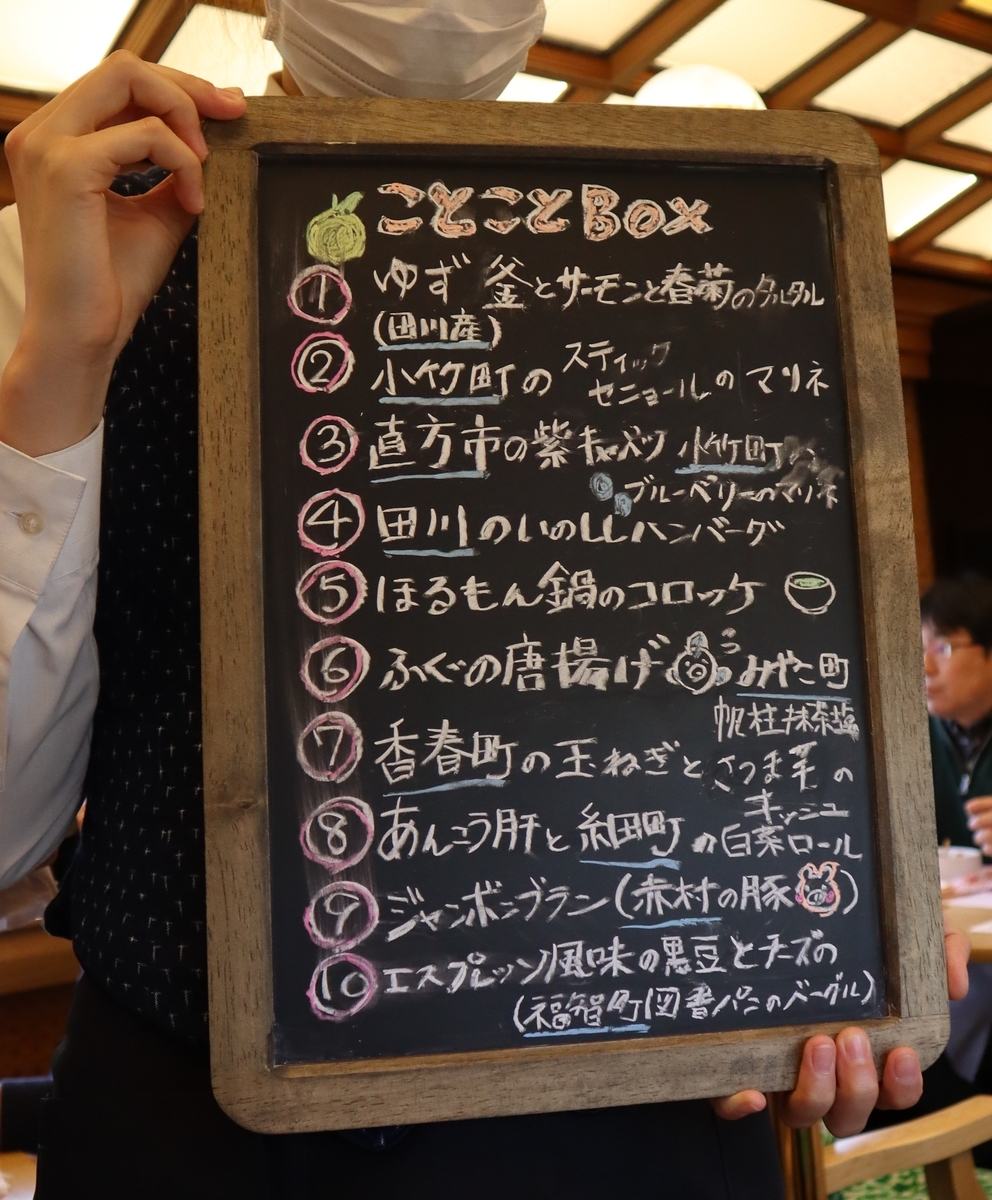 ことことBox
① ゆず釜とサーモンと春菊のタルタル
(田川産)
② 小竹町のスティック
セニョールのマリネ
③ 直方市の紫キャベツ 小竹町の
ブルーベリーのマリネ
④ 田川のいのししハンバーグ
⑤ ほるもん鍋のコロッケ
⑥ ふぐの唐揚げ みやこ町
帆柱抹茶塩
⑦ 香春町の玉ねぎとさつま芋の
キッシュ
⑧ あんこう肝と糸田町の白菜ロール
⑨ ジャンボンブラン(赤村の豚)
⑩ エスプレッソ風味の黒豆とチーズの
(福智町図書パンのベーグル)